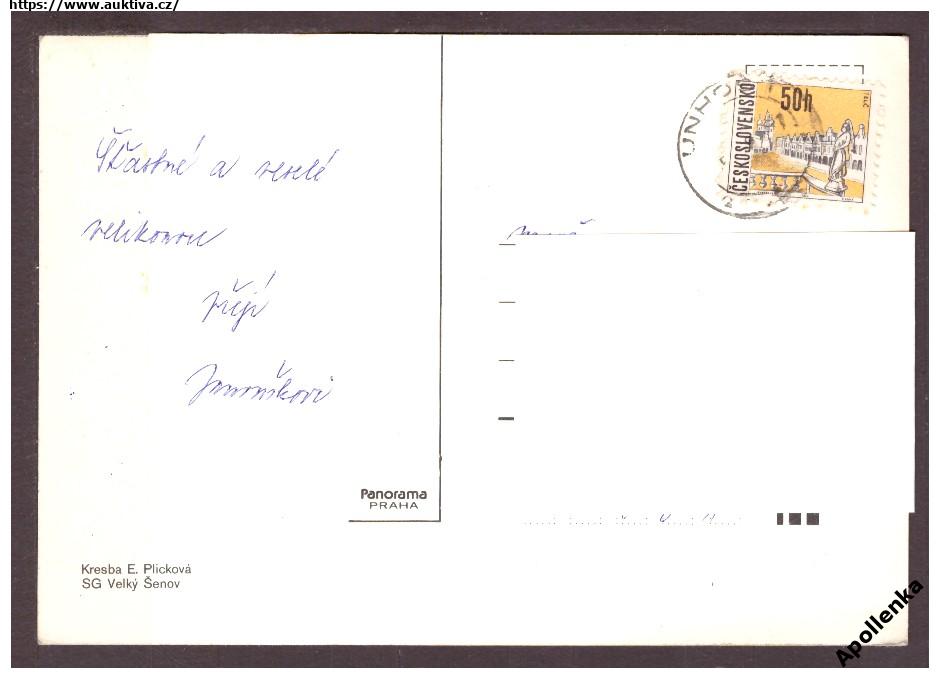 https://www.auktiva.cz/
Šťastné a veselé
velikonoce
přejí
UNHO
ČESKOSLOVENSKO
50h
TELČ
Panorama
PRAHA
Kresba E. Plicková
SG Velký Šenov
Apollenka